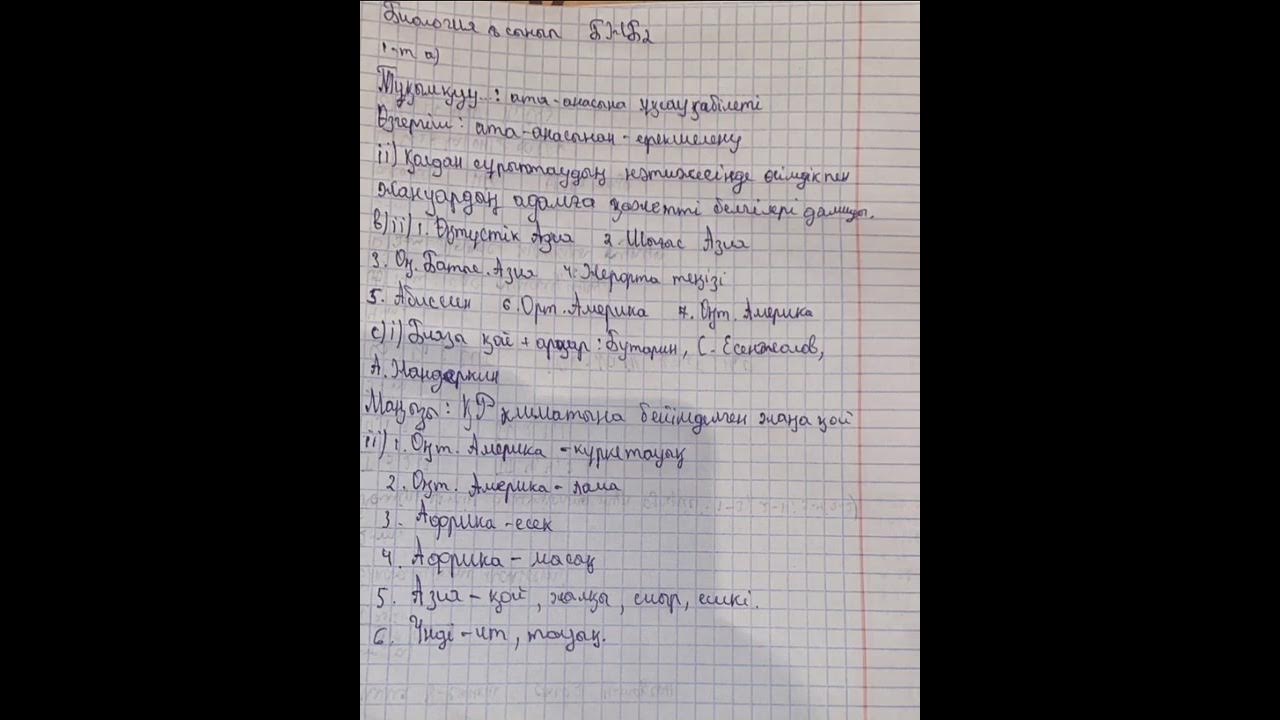 Биология 8 сынып БЖБ2
1-т а)
Тұқымқуу..: ата-анасына ұқсау қабілеті
Өзгергіш: ата-анасынан-ерекшелену
ii) Қолдан сұрыптаудың нәтижесінде өсімдікпен
жануардың адамға қажетті белгілері дамиды.
в) ii) 1. Оңтүстік Азия 2. Шығыс Азия
3. Оң. Батыс. Азия 4. Жерорта теңізі
5. Абиссин 6. Орт. Америка 7. Оңт. Америка
с) i) Биязы қой + арқар: Бутарин, С. Есенжолов,
А. Жандеркин
Маңызы: ҚР климатына бейімделген жаңа қой
ii) 1. Оңт. Америка - күркетауық
2. Оңт. Америка - лама
3. Африка - есек
4. Африка - мысық
5. Азия - қой, жылқы, сиыр, ешкі.
6. Үнді - ит, тауық.